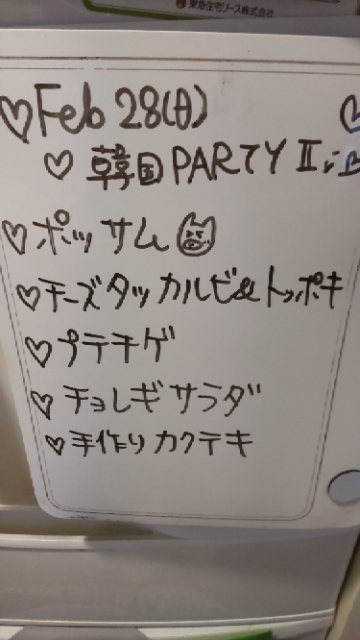 東急住宅リース株式会社
♡Feb 28(日)
♡ 韓国 PARTY Ⅱ
♡ポッサム
♡チーズタッカルビ&トッポキ
♡プテチゲ
♡チョレギサラダ
♡手作りカクテキ